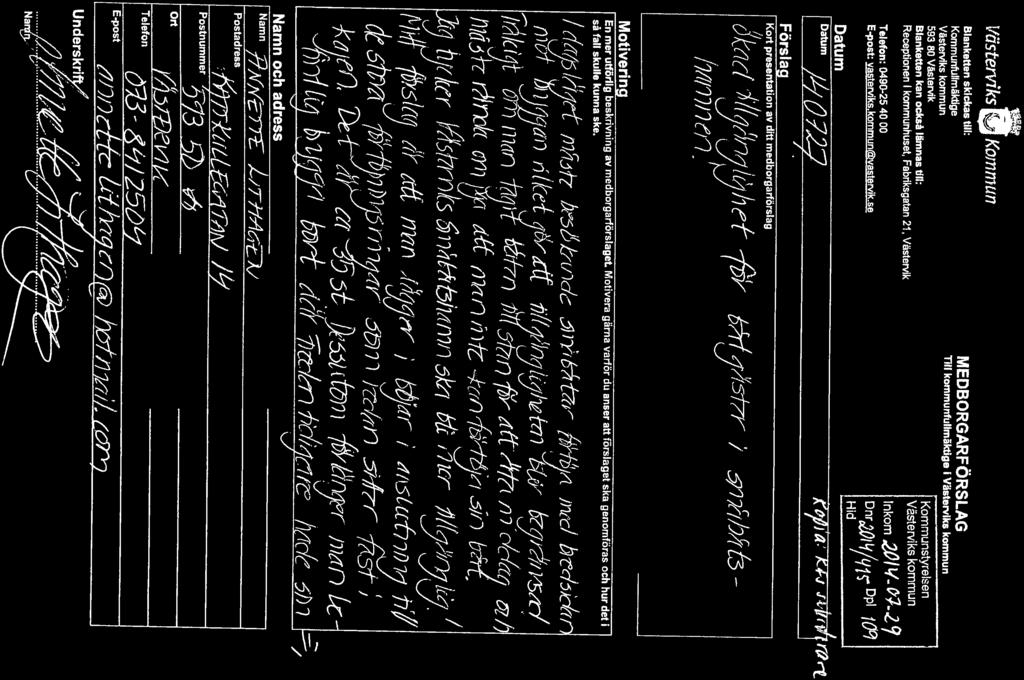 Västerviks Kommun
Blanketten skickas till:
Kommunfullmäktige
Västerviks kommun
593 80 Västervik
Blanketten kan också lämnas till:
Receptionen i kommunhuset, Fabriksgatan 21, Västervik
Telefon: 0490-25 40 00
E-post: vasterviks.kommun@vastervik.se
MEDBORGARFÖRSLAG
Till kommunfullmäktige i Västerviks kommun
Kommunstyrelsen
Västerviks kommun
Inkom 2014-07-29
Dnr 2014/415- Dpl 109
Hid
Kopia:
Datum
Datum
140727
Förslag
Kort presentation av ditt medborgarförslag
Ökad tillgänglighet för båtgäster i småbåts-
hamnen.
Motivering
En mer utförlig beskrivning av medborgarförslaget. Motivera gärna varför du anser att förslaget ska genomföras och hur det i
så fall skulle kunna ske.
I dagsläget måste besökande småbåtar förtöja med bredsidan
mot bryggan vilket gör att tillgängligheten blir begränsad
Tråkigt om man tagit båten till stan för att äta middag och
måste vända om pga att man inte kan förtöja sin båt.
Jag tycker Västerviks Småbåtshamn ska bli mer tillgänglig.
Mitt förslag är att man lägger i bojar i anslutning till
de stora förtöjningsringar som redan sitter fast i
kajen. Det är ca 35 st. Dessutom förlänger man be-
fintlig brygga bort där Freden tidigare hade sin =>
Namn och adress
Namn ANNETTE LITHAGEN
Postadress KÄTTSKILLEGATAN 14
Postnummer 593 50
Ort VÄSTERVIK
Telefon 073-8412504
E-post annette.lithagen@hotmail.com
Underskrift
Annette Lithagen
Namn